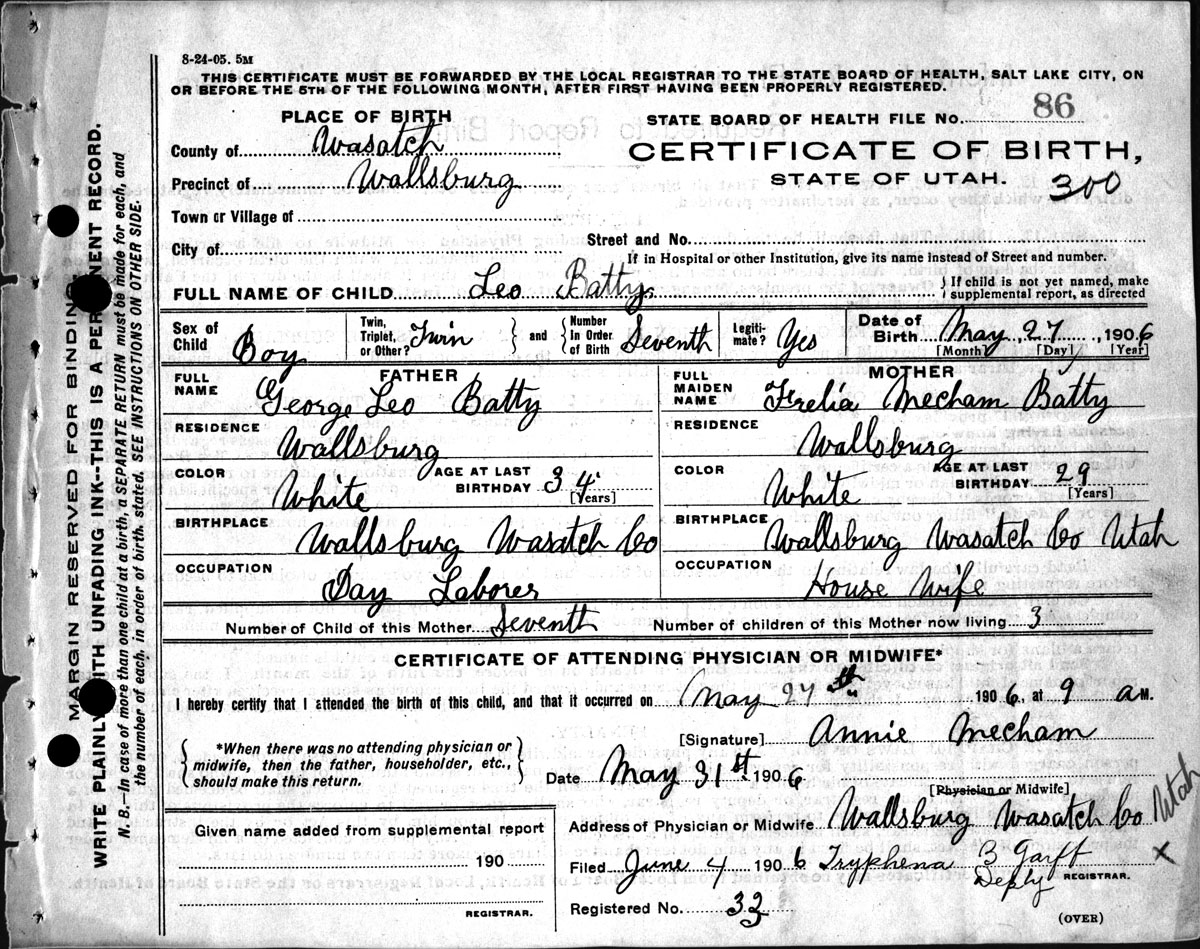 8-24-05. 5M
THIS CERTIFICATE MUST BE FORWARDED BY THE LOCAL REGISTRAR TO THE STATE BOARD OF HEALTH, SALT LAKE CITY, ON
OR BEFORE THE 5TH OF THE FOLLOWING MONTH, AFTER FIRST HAVING BEEN PROPERLY REGISTERED.
PLACE OF BIRTH
STATE BOARD OF HEALTH FILE No. 86
County of Wasatch
CERTIFICATE OF BIRTH,
Precinct of Wallsburg
STATE OF UTAH. 300
Town or Village of
City of
Street and No.
If in Hospital or other Institution, give its name instead of Street and number.
FULL NAME OF CHILD Leo Batty
{ If child is not yet named, make
supplemental report, as directed
Sex of Child Boy
Twin, Triplet, or Other? Twin } and { Number In Order of Birth Seventh
Legitimate? Yes
Date of Birth May 27, 1906
[Month] [Day] [Year]
FATHER
FULL NAME George Leo Batty
RESIDENCE Wallsburg
COLOR White AGE AT LAST BIRTHDAY 34 [Years]
BIRTHPLACE Wallsburg Wasatch Co
OCCUPATION Day Laborer
MOTHER
FULL MAIDEN NAME Frelia Mecham Batty
RESIDENCE Wallsburg
COLOR White AGE AT LAST BIRTHDAY 29 [Years]
BIRTHPLACE Wallsburg Wasatch Co Utah
OCCUPATION House Wife
Number of Child of this Mother Seventh Number of children of this Mother now living 3
CERTIFICATE OF ATTENDING PHYSICIAN OR MIDWIFE*
I hereby certify that I attended the birth of this child, and that it occurred on May 27th 1906, at 9 a M.
{ *When there was no attending physician or
midwife, then the father, householder, etc.,
should make this return. }
[Signature] Annie Mecham
Date May 31st 1906
[Physician or Midwife]
Address of Physician or Midwife Wallsburg Wasatch Co Utah
Given name added from supplemental report
190
REGISTRAR.
Filed June 4 1906 Tryphena B Garff X
Deply REGISTRAR.
Registered No. 33
(OVER)
MARGIN RESERVED FOR BINDING.
WRITE PLAINLY WITH UNFADING INK--THIS IS A PERMANENT RECORD.
N. B.—In case of more than one child at a birth, a SEPARATE RETURN must be made for each, and
the number of each, in order of birth, stated. SEE INSTRUCTIONS ON OTHER SIDE.